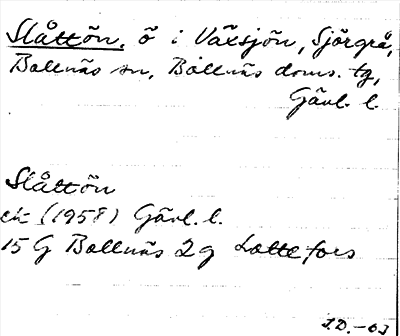 Slåttön, ö i Växsjön, Sjögrå,
Bollnäs sn, Bollnäs doms. tg,
Gävl. l.
Slåttön
ek (1958) Gävl. l.
15 G Bollnäs 2 g Lottefors
I.D. -63